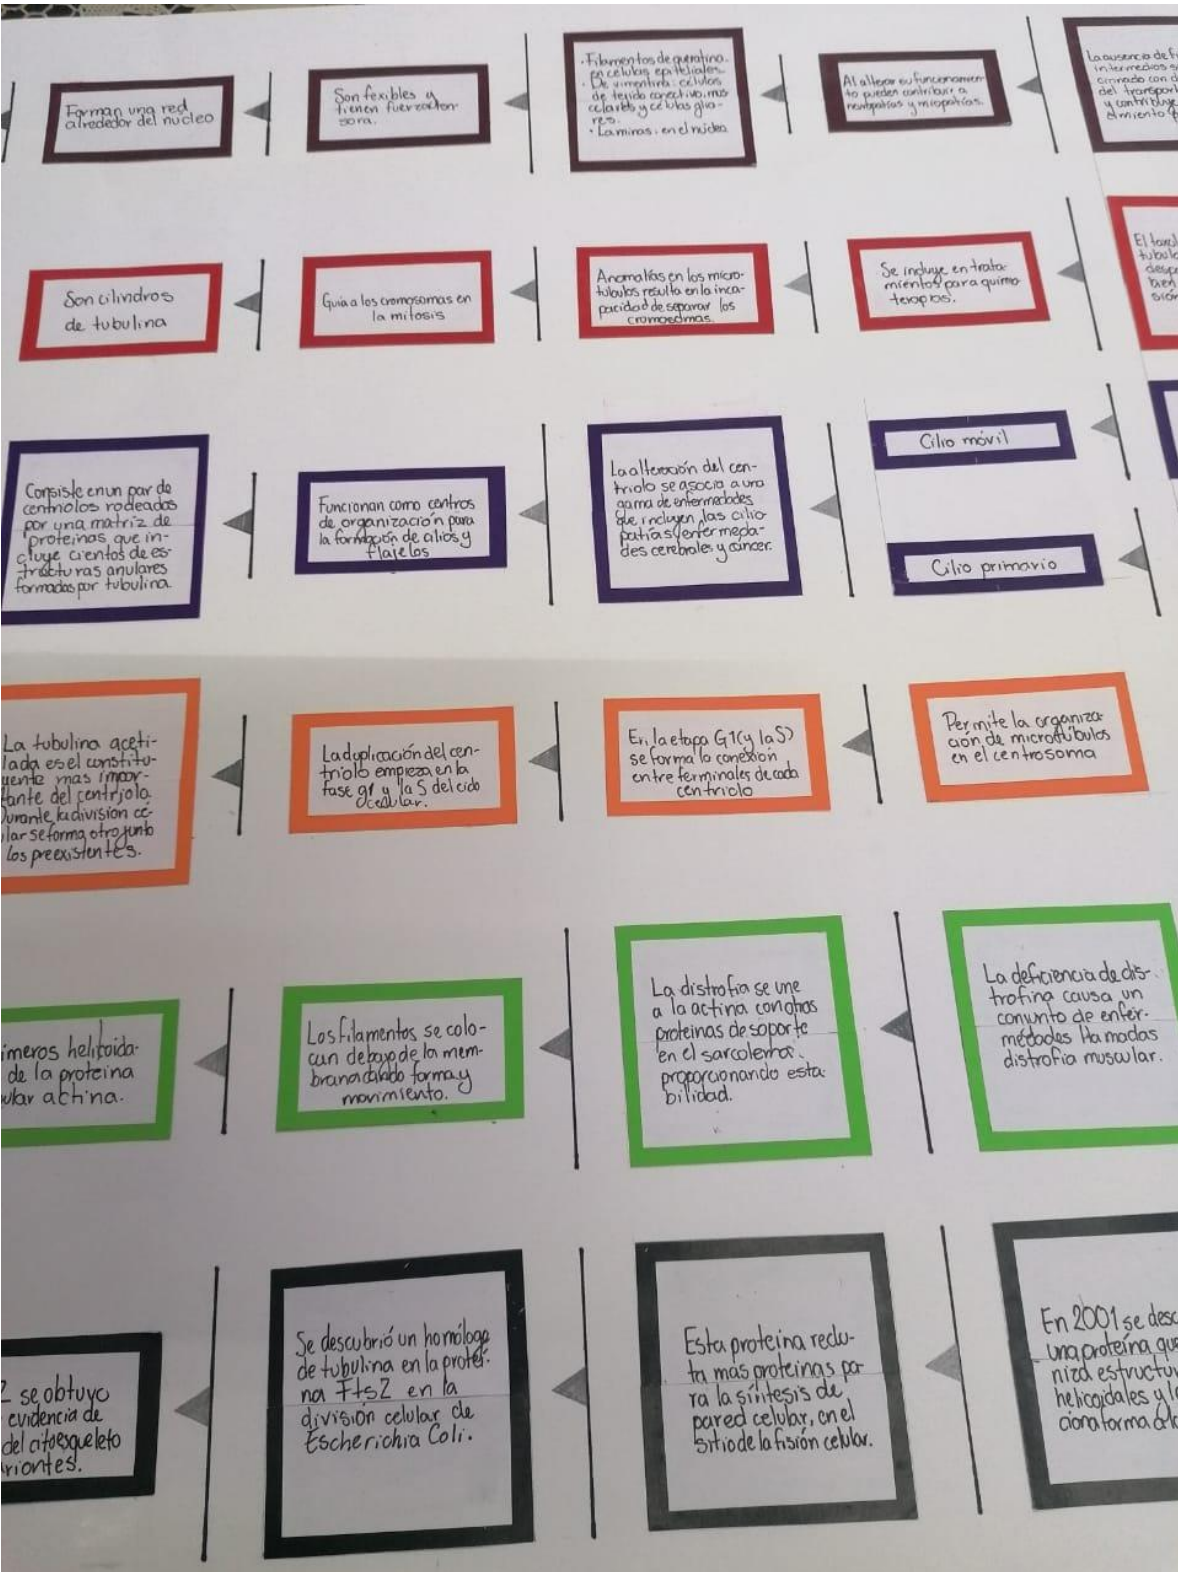 Forman una red
alrededor del nucleo
Son fexibles y
tienen fuerza ten-
sora.
· Filamentos de queratina.
en celulas epiteliales.
· De vimentina: células
de tejido conectivo, mus
celares y células glia-
res.
· Laminas: en el núcleo
Al alterar su funcionamien
to pueden contribuir a
neuropatías y miopatías.
La ausencia de fi
intermedios s
cionado con d
del transport
y contribuye
Son cilindros
de tubulina
Guia a los cromosomas en
la mitosis
Anomalías en los micro-
túbulos resulta en la inca-
pacidad de separar los
Se incluye en trata-
mientos para quimio
terapias.
El taxol
tubulo
desp
bien
Consiste en un par de
centriolos rodeados
por una matriz de
proteinas que in-
cluye cientos de es-
tructuras anulares
formadas por tubulina.
Funcionan como centros
de organización para
la formación de cilios y
flajelos
La alteración del cen-
triolo se asocia a una
gama de enfermedades
que incluyen, las cilio
patías, enfermeda-
des cerebrales y cáncer.
Cilio móvil
Cilio primario
La tubulina aceti-
lada es el constitu-
yente mas impor-
tante del centriolo.
Durante la división ce-
lar se forma otro junto
los preexistentes.
La duplicación del cen-
triolo empieza en la
fase g1 y la S del ciclo
celular.
En la etapa G1(y la S)
se forma la conexión
entre terminales de cada
centriolo
Permite la organiza-
ción de microtúbulos
en el centrosoma
ímeros helicoida-
de la proteina
ular actina.
Los filamentos se colo-
can debajo de la mem-
brana dando forma y
movimiento.
La distrofia se une
a la actina con otras
proteinas de soporte
en el sarcolema.
proporcionando esta-
bilidad.
La deficiencia de dis-
trofina causa un
conjunto de enfer-
medades llamadas
distrofia muscular.
2 se obtuvo
evidencia de
del citoesqueleto
riontes.
Se descubrió un homólogo
de tubulina en la proteí-
na FtsZ en la
división celular de
Escherichia Coli.
Esta proteina reclu-
ta mas proteinas pa-
ra la síntesis de
pared celular, en el
sitio de la fisión celular.
En 2001 se desc
una proteína que
niza estructur
helicoidales y l
ciona forma a la